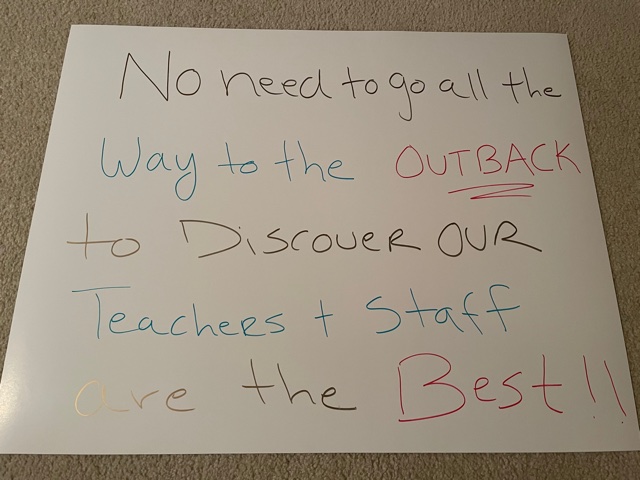 No need to go all the
Way to the OUTBACK
to DISCOVER OUR
Teachers + Staff
are the Best!!